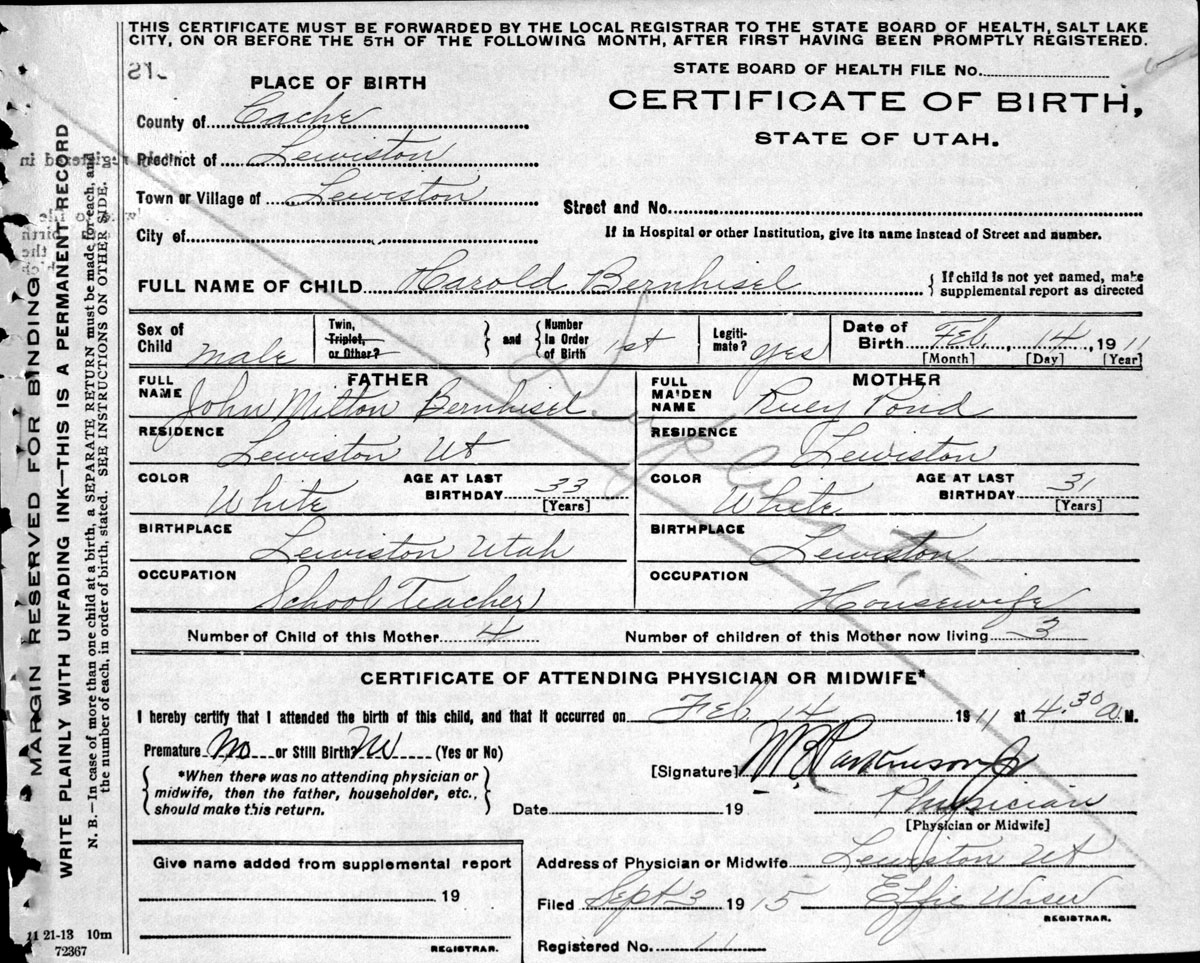 THIS CERTIFICATE MUST BE FORWARDED BY THE LOCAL REGISTRAR TO THE STATE BOARD OF HEALTH, SALT LAKE
CITY, ON OR BEFORE THE 5TH OF THE FOLLOWING MONTH, AFTER FIRST HAVING BEEN PROMPTLY REGISTERED.
PLACE OF BIRTH
STATE BOARD OF HEALTH FILE No.
County of Cache
CERTIFICATE OF BIRTH,
STATE OF UTAH.
Precinct of Lewiston
Town or Village of Lewiston
Street and No.
City of
If in Hospital or other Institution, give its name instead of Street and number.
FULL NAME OF CHILD Harold Bernhisel
{ If child is not yet named, make
supplemental report as directed
Sex of Child male
Twin, Triplet, or Other?
and
Number in Order of Birth 1st
Legiti-mate? yes
Date of Birth Feb. 14, 1911
[Month] [Day] [Year]
FATHER
FULL NAME John Milton Bernhisel
MOTHER
FULL MAIDEN NAME Ruey Pond
RESIDENCE Lewiston Ut
RESIDENCE Lewiston
COLOR White AGE AT LAST BIRTHDAY 33 [Years]
COLOR White AGE AT LAST BIRTHDAY 31 [Years]
BIRTHPLACE Lewiston Utah
BIRTHPLACE Lewiston
OCCUPATION School Teacher
OCCUPATION Housewife
Number of Child of this Mother 4 Number of children of this Mother now living 3
CERTIFICATE OF ATTENDING PHYSICIAN OR MIDWIFE*
I hereby certify that I attended the birth of this child, and that it occurred on Feb. 14 1911 at 4.30 a M.
Premature No or Still Birth? No (Yes or No)
*When there was no attending physician or
midwife, then the father, householder, etc.,
should make this return.
[Signature] WB Parkinson Jr
Date 19
Physician
[Physician or Midwife]
Give name added from supplemental report
19
REGISTRAR.
Address of Physician or Midwife Lewiston Ut
Filed Sept 3 1915 Effie Wiser
REGISTRAR.
Registered No. 11
MARGIN RESERVED FOR BINDING
WRITE PLAINLY WITH UNFADING INK—THIS IS A PERMANENT RECORD
N. B.—In case of more than one child at a birth, a SEPARATE RETURN must be made for each, and
the number of each, in order of birth, stated. SEE INSTRUCTIONS ON OTHER SIDE.
21-13 10m
72367